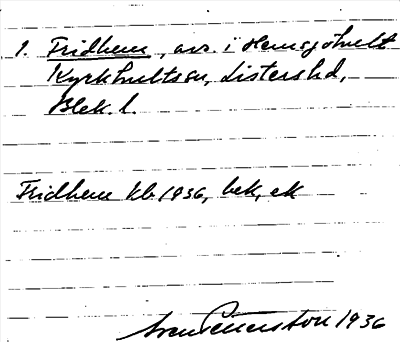 1. Fridhem, avs. i Hemsjöhult
Kyrkhultssn, Listers hd,
Blek. l.
Fridhem kb 1936, bek, ek
Sven Peterston 1936